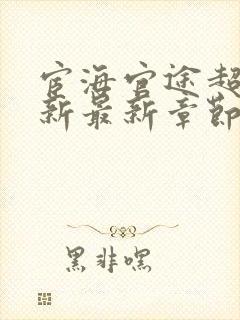 宦海官途超
新最新章节
黑非嘿